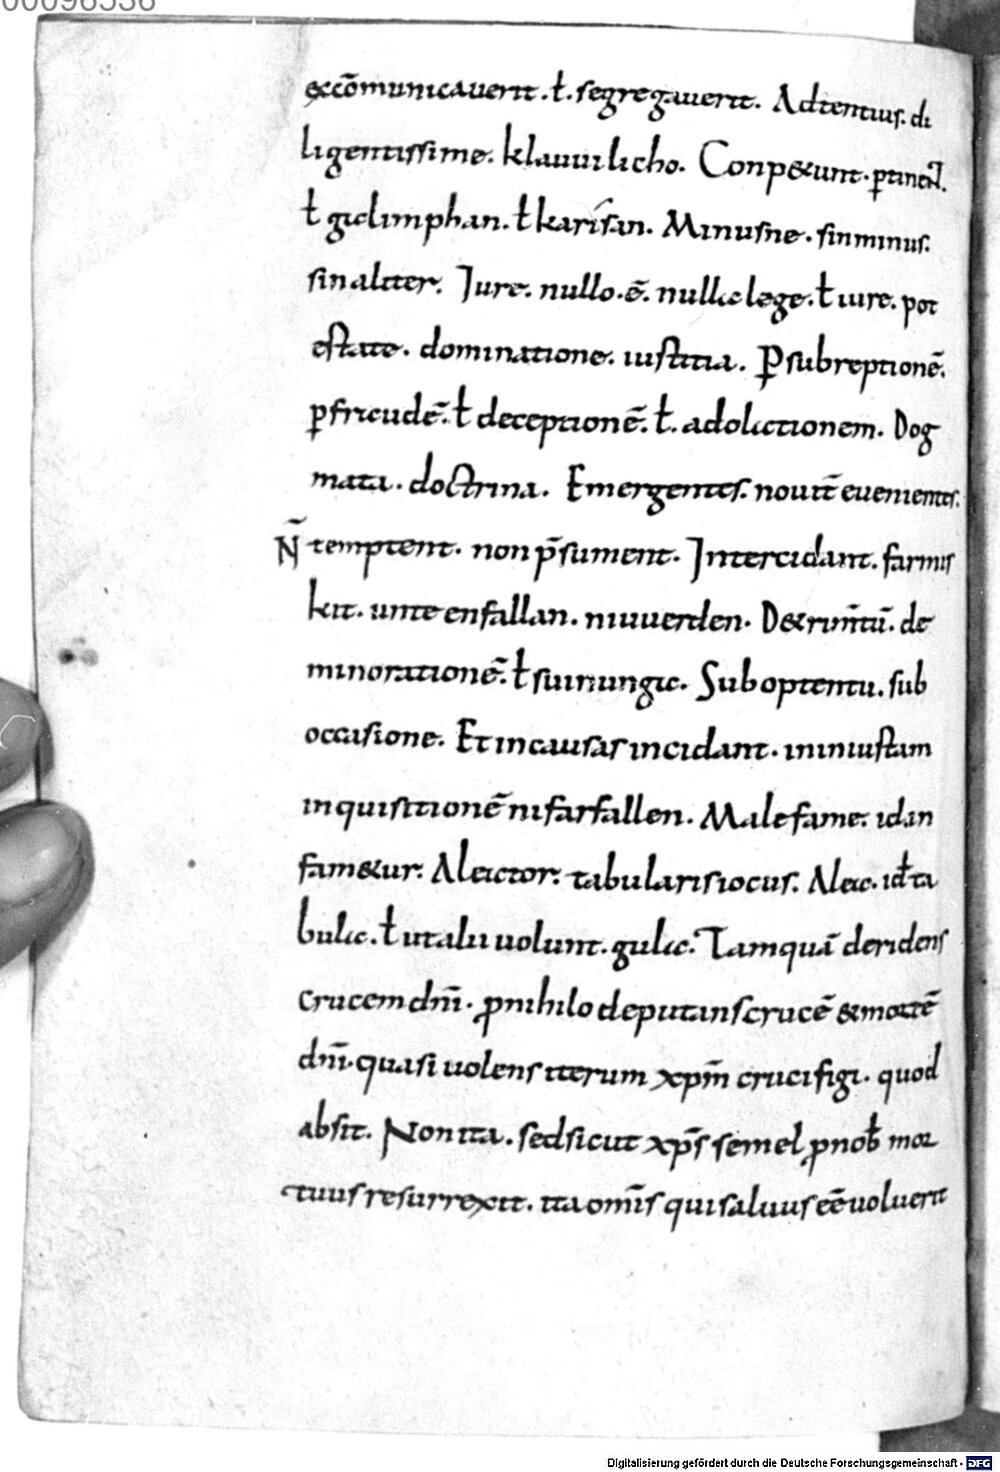 00096536
excōmunicauerit. ł. segregauerit. Adtentius. di
ligentissime. klauuilicho. Conp&unt. ꝑtinent.
ł gidimphan. ł karísan. Minusne. sin minus.
sin aliter. Iure. nullo. ē. nulla lege. ł iure. pot
estate. dominatione. iustitia. P subreptionē.
ꝑ fraudē. ł deceptionē. ł. adolationem. Dog
mata. doctrina. Emergentes. nouit̄ euenientes.
N̄ temptent. non p̄sument. Intercidant. farnis
kit. unte enfallan. niuuerden. D&rim̄tū. de
minorationē. ł suinunga. Sub optentu. sub
occasione. Et in causas incidant. in iniustam
inquisitionē ni farfallen. Male fame. id. in
fam&ur. Aleator. tabularis iocus. Alea. iđ ta
bula. ł ut alii uolunt. gula. Tamquā deridens
crucem dn̄i. ꝓ nihilo deputans crucē & mortē
dn̄i. quasi uolens iterum xp̄m crucifigi. quod
absit. Non ita. sed sicut xp̄s semel ꝓ noƀ mor
tuus resurrexit. ita om̄s qui saluus eē uoluerit
Digitalisierung gefördert durch die Deutsche Forschungsgemeinschaft - DFG